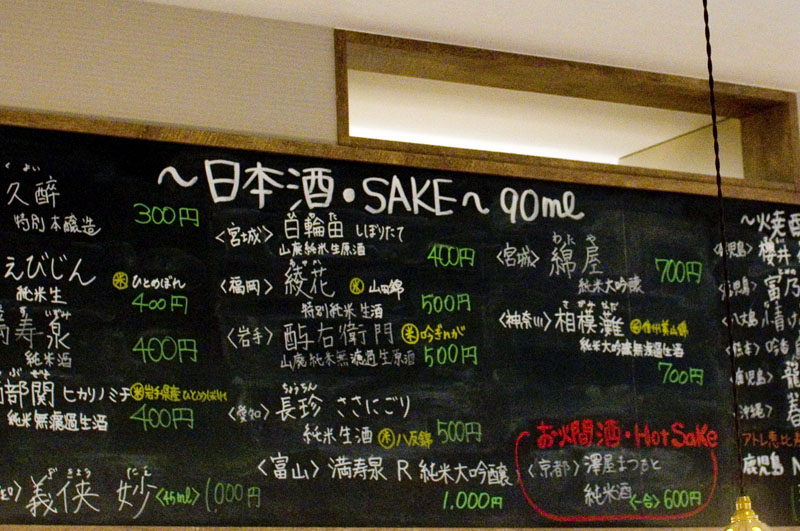 ～日本酒・SAKE～90ml
くよい
久醉
特別本醸造
300円
えびじん
米ひとめぼれ
純米生
400円
寿泉
純米酒
400円
部関 ヒカリノミチ
米岩手県産ひとめぼれ
純米無濾過生酒
400円
ぎきょう たえ
義侠 妙〈45ml〉1,000円
〈宮城〉
しぼりたて
山廃純米生原酒
400円
〈福岡〉綾花
米山田錦
特別純米生酒
500円
〈岩手〉酉与右衛門
米吟ぎんが
山廃純米無濾過生原酒
500円
ちょうちん
〈愛知〉長珍 ささにごり
純米生酒
米八反錦
500円
〈富山〉満寿泉 R 純米大吟醸
1,000円
わたや
〈宮城〉綿屋
純米大吟醸
700円
さがみなだ
〈神奈川〉相模灘
米信州美山錦
純米大吟醸無濾過生酒
700円
お燗酒・Hot Sake
〈京都〉澤屋まつもと
純米酒
〈一合〉600円
～焼酎
鹿児島